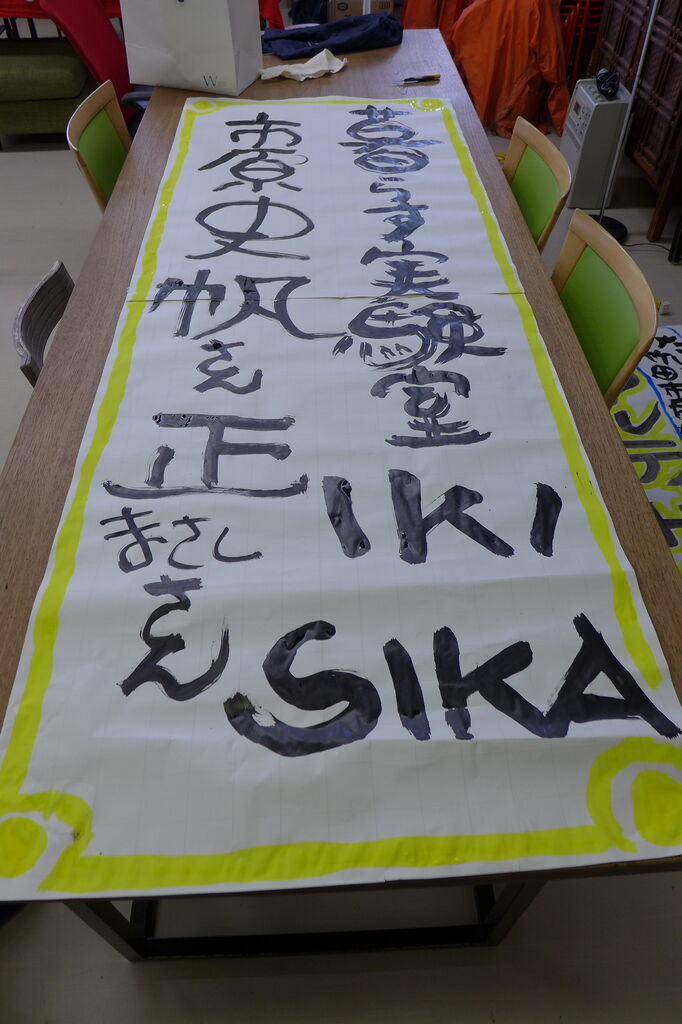 暮らす実験室
IKI
SIKA
市原史帆さん
正
まさし
さん
W